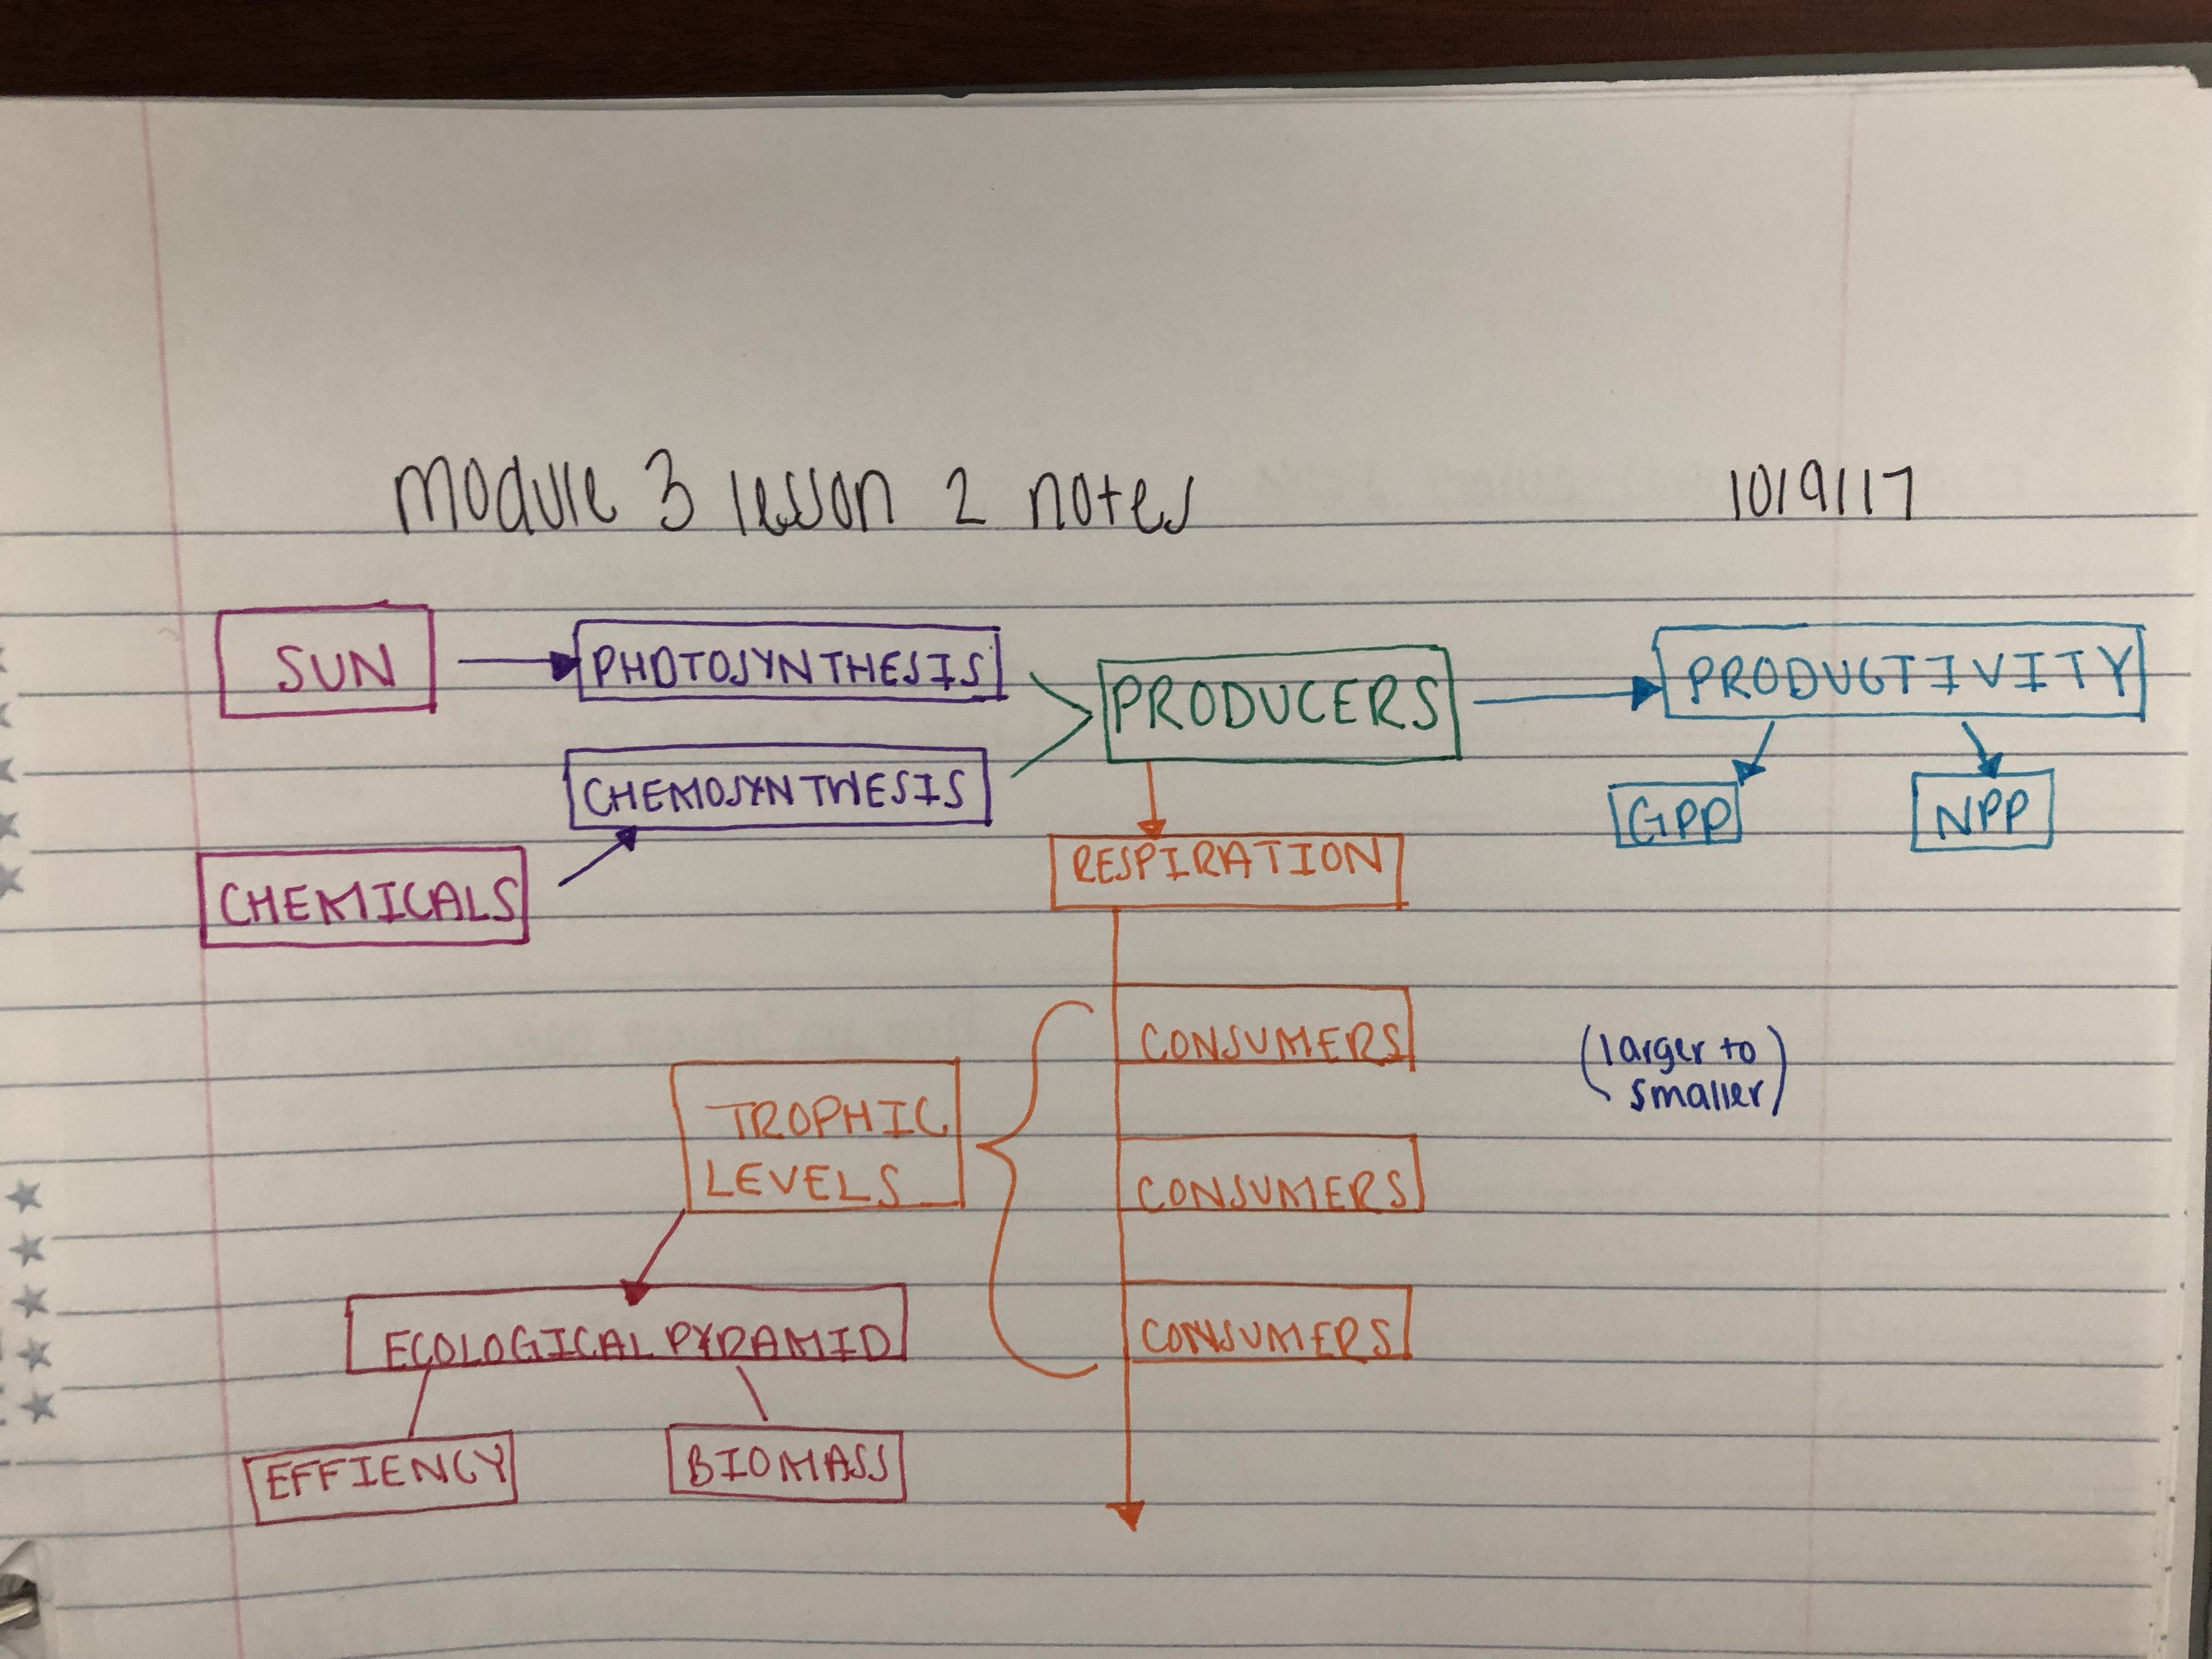 module 3 lesson 2 notes 10/9/17
SUN
PHOTOSYNTHESIS
PRODUCERS
PRODUCTIVITY
CHEMOSYNTHESIS
GPP
NPP
CHEMICALS
RESPIRATION
CONSUMERS
(larger to
smaller)
TROPHIC
LEVELS
CONSUMERS
ECOLOGICAL PYRAMID
CONSUMERS
EFFIENCY
BIOMASS